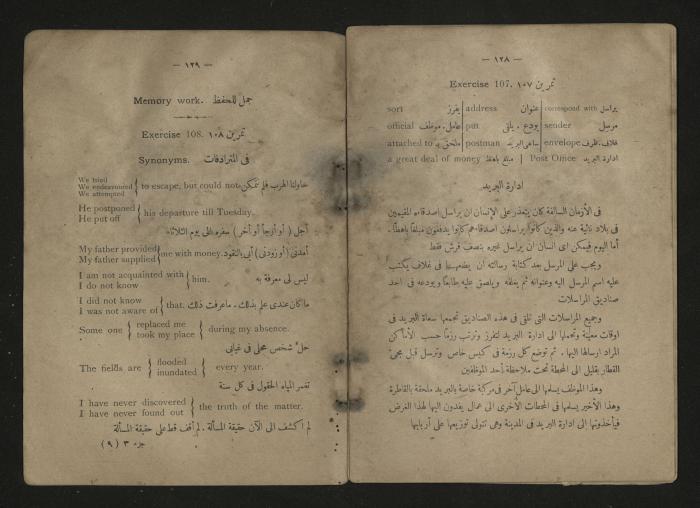 — ١٢٨ —
Exercise 107. تمرين ١٠٧
sort يفرز | address عنوان | correspond with يراسل
official عامل . موظف | put يودع . يلقى | sender مرسل
attached to ملحق به | postman ساعى البريد | envelope غلاف . ظرف
a great deal of money مبلغ باهظ | Post Office ادارة البريد
ادارة البريد
فى الأزمان السالفة كان يتعذر على الإنسان ان يراسل اصدقاءه المقيمين
فى بلاد نائية عنه والذين كانوا يراسلون اصدقاءهم كانوا يدفعون مبلغا باهظا .
أما اليوم فيمكن اى انسان ان يراسل غيره بنصف قرش فقط
ويجب على المرسل بعد كتابة رسالته ان يضعها فى غلاف يكتب
عليه اسم المرسل اليه وعنوانه ثم يغلقه ويلصق عليه طابعا ويودعه فى احد
صناديق المراسلات
وجميع المراسلات التى تلقى فى هذه الصناديق تجمعها سعاة البريد فى
اوقات معينة وتحملها الى ادارة البريد لتفرز وترتب رزما حسب الأماكن
المراد ارسالها اليها . ثم توضع كل رزمة فى كيس خاص وترسل قبل مجىء
القطار بقليل الى المحطة تحت ملاحظة أحد الموظفين
وهذا الموظف يسلمها الى عامل آخر فى مركبة خاصة بالبريد ملحقة بالقاطرة
وهذا الأخير يسلمها فى المحطات الأخرى الى عمال يفدون اليها لهذا الغرض
فيأخذونها الى ادارة البريد فى المدينة وهى تتولى توزيعها على أربابها
— ١٢٩ —
Memory work. جمل للحفظ
Exercise 108. تمرين ١٠٨
Synonyms. فى المترادفات
We tried
We endeavoured } to escape, but could not حاولنا الهرب فلم نتمكن
We attempted
He postponed
He put off } his departure till Tuesday.
أجل ( أو أرجأ أو أخر ) سفره الى يوم الثلاثاء
My father provided
My father supplied } me with money. أمدنى ( أو زودنى ) أبى بالنقود
I am not acquainted with
I do not know } him. ليس لى معرفة به
I did not know
I was not aware of } that. ما كان عندى علم بذلك . ما عرفت ذلك
Some one { replaced me
took my place } during my absence.
حل شخص محلى فى غيابى
The fields are { flooded
inundated } every year.
تغمر المياه الحقول فى كل سنة
I have never discovered
I have never found out } the truth of the matter.
لم اكتشف الى الآن حقيقة المسألة . لم أقف قط على حقيقة المسألة
جزء ٣ ( ٩ )